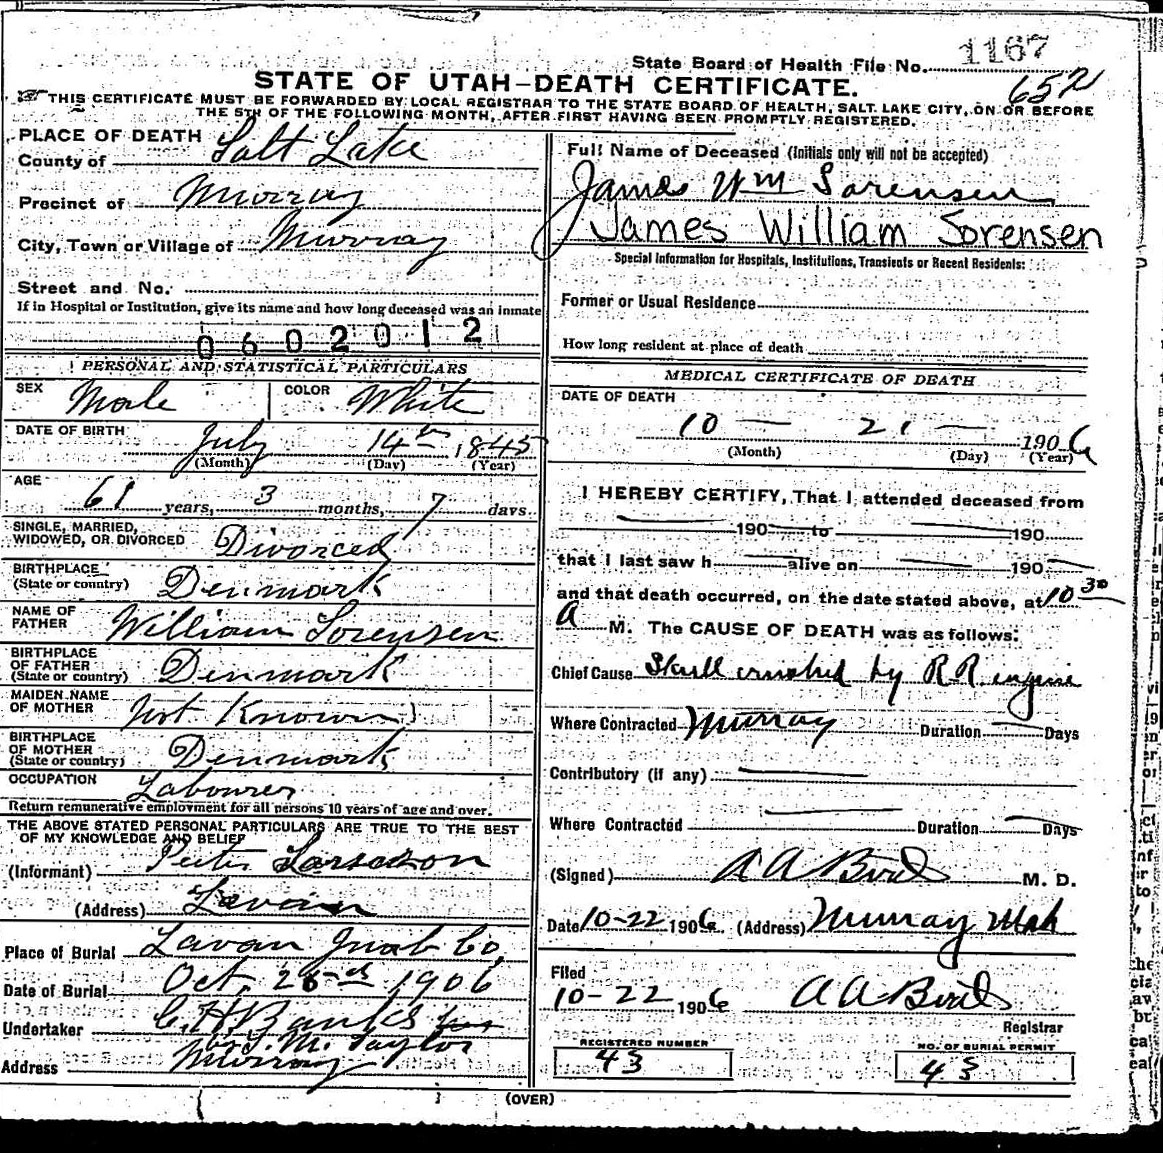 State Board of Health File No. 1167
652
STATE OF UTAH—DEATH CERTIFICATE.
THIS CERTIFICATE MUST BE FORWARDED BY LOCAL REGISTRAR TO THE STATE BOARD OF HEALTH, SALT LAKE CITY, ON OR BEFORE
THE 5TH OF THE FOLLOWING MONTH, AFTER FIRST HAVING BEEN PROMPTLY REGISTERED.
PLACE OF DEATH
County of Salt Lake
Precinct of Murray
City, Town or Village of Murray
Street and No.
If in Hospital or Institution, give its name and how long deceased was an inmate
0602012
PERSONAL AND STATISTICAL PARTICULARS
SEX Male COLOR White
DATE OF BIRTH July 14th 1845
(Month) (Day) (Year)
AGE 61 years, 3 months, 7 days
SINGLE, MARRIED, WIDOWED, OR DIVORCED Divorced
BIRTHPLACE (State or country) Denmark
NAME OF FATHER William Sorensen
BIRTHPLACE OF FATHER (State or country) Denmark
MAIDEN NAME OF MOTHER Not Known
BIRTHPLACE OF MOTHER (State or country) Denmark
OCCUPATION Labourer
Return remunerative employment for all persons 10 years of age and over.
THE ABOVE STATED PERSONAL PARTICULARS ARE TRUE TO THE BEST
OF MY KNOWLEDGE AND BELIEF
(Informant) Peter
(Address) Levan
Place of Burial Lavan Juab Co.
Date of Burial Oct. 1906
Undertaker C. H. Banks
J. M. Taylor
Address Murray
Full Name of Deceased (Initials only will not be accepted)
James Wm Sorensen
James William Sorensen
Special Information for Hospitals, Institutions, Transients or Recent Residents:
Former or Usual Residence
How long resident at place of death
MEDICAL CERTIFICATE OF DEATH
DATE OF DEATH
10 — 21 — 1906
(Month) (Day) (Year)
I HEREBY CERTIFY, That I attended deceased from
190 to 190
that I last saw h alive on 190
and that death occurred, on the date stated above, at 10 30
A M. The CAUSE OF DEATH was as follows:
Chief Cause Skull crushed by R R engine
Where Contracted Murray Duration Days
Contributory (if any)
Where Contracted Duration Days
(Signed) A A Bird M. D.
Date 10-22 1906 (Address) Murray Utah
Filed
10-22 1906 A A Bird
Registrar
REGISTERED NUMBER
43
NO. OF BURIAL PERMIT
43
(OVER)